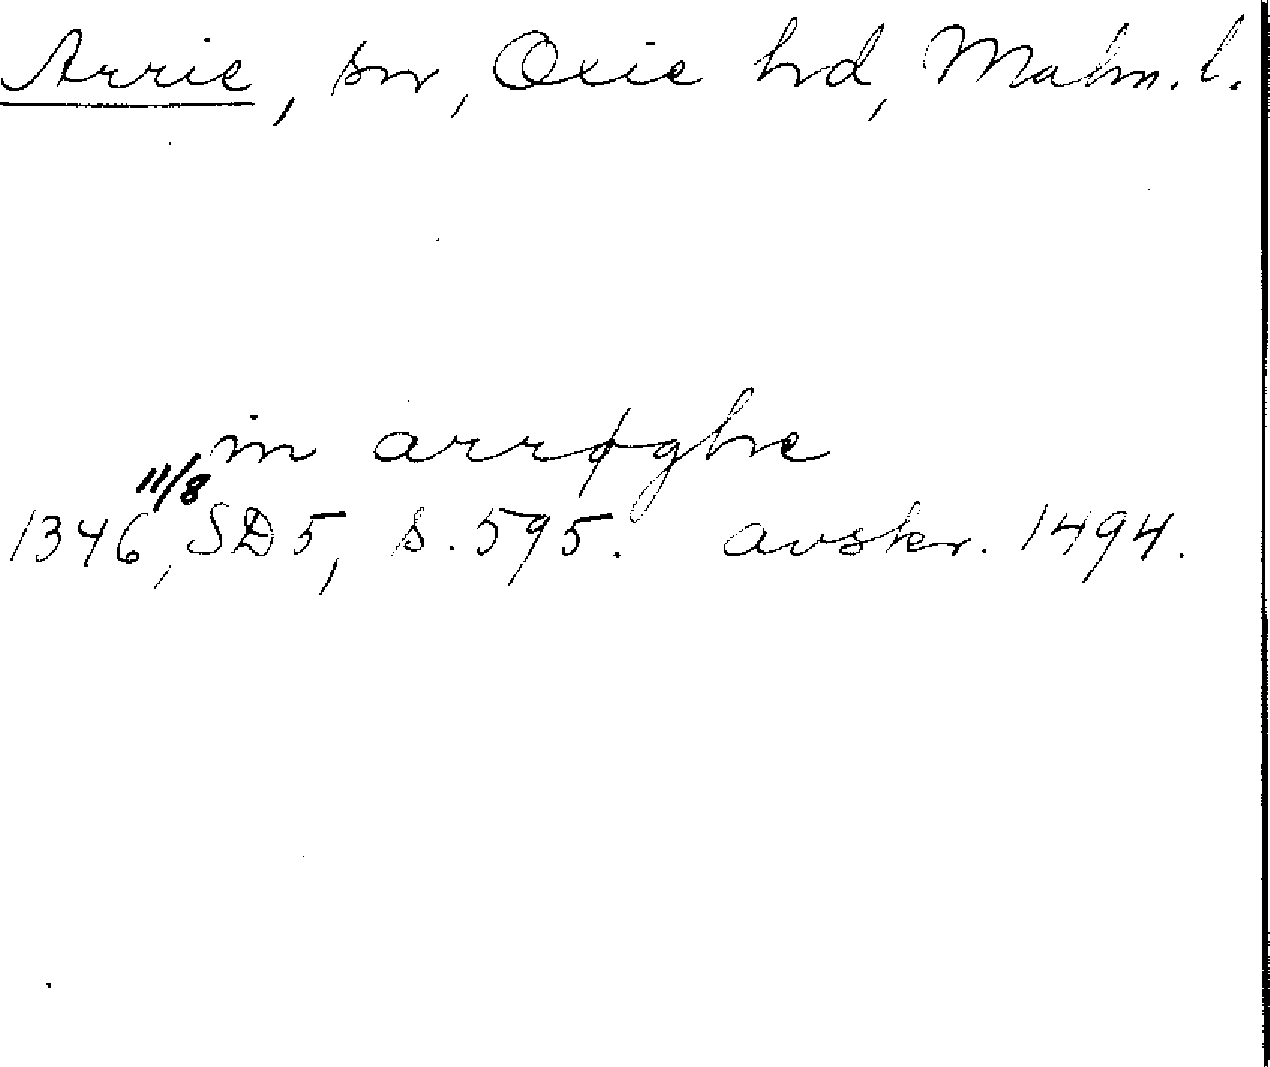 Arrie, sn, Oxie hd, Malm. l.
in arrøghe
1346 11/8, SD 5, s. 595. avskr. 1494.